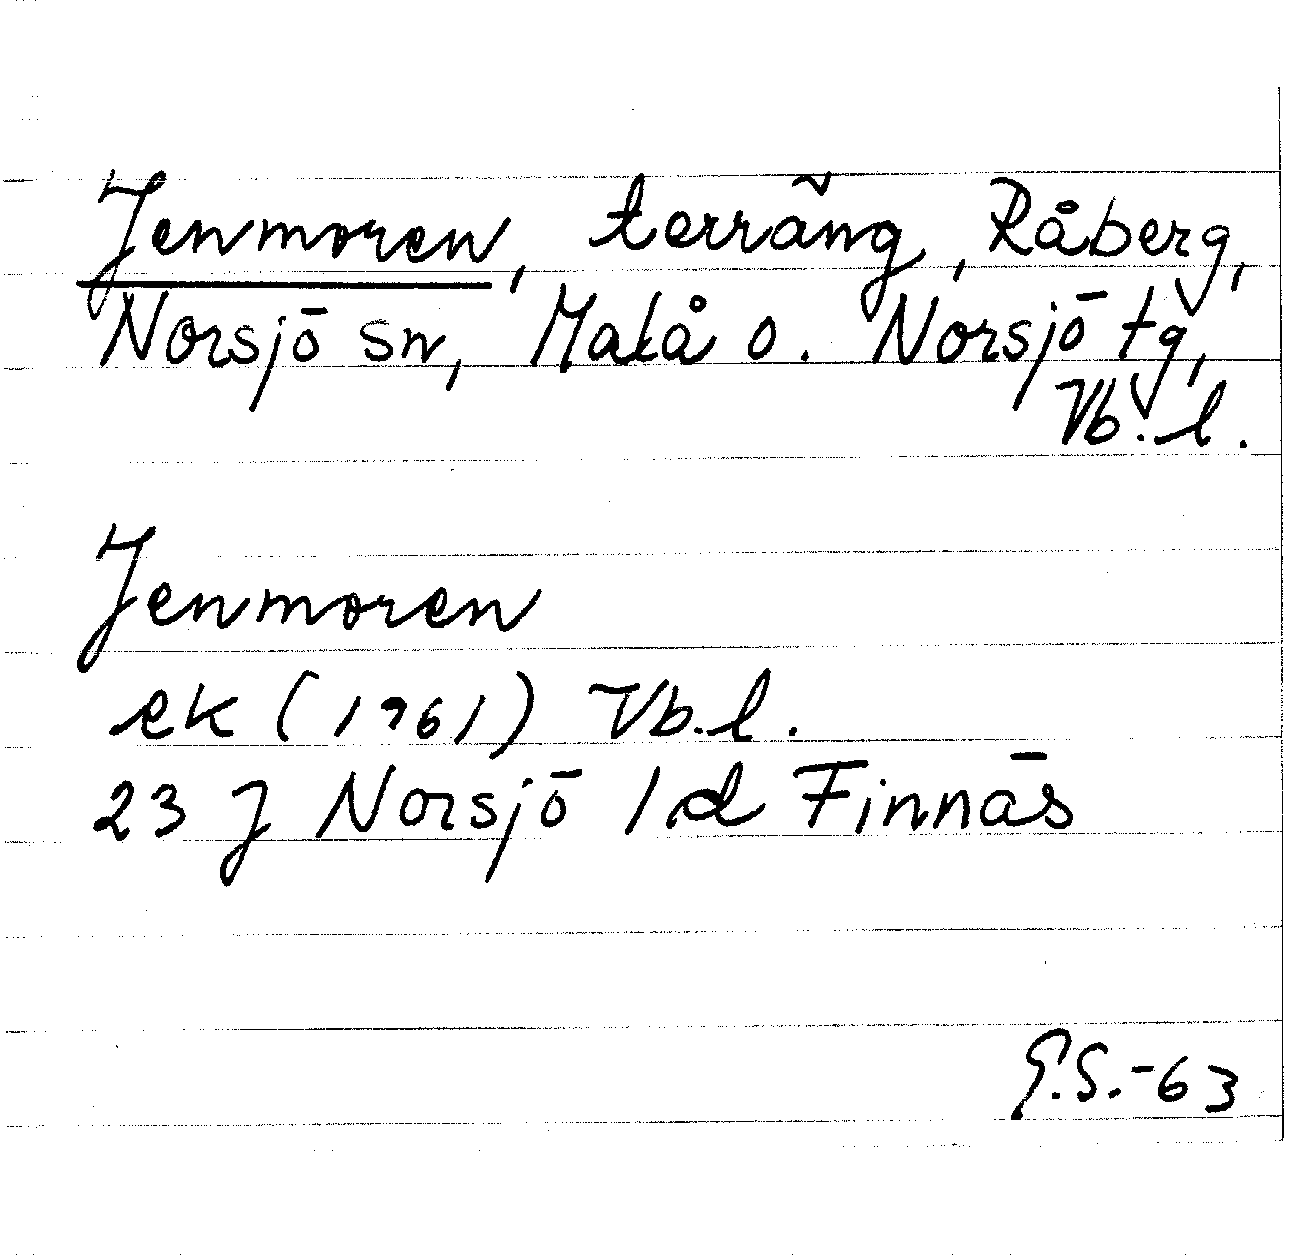 Jenmoren, terräng, Råberg,
Norsjö sn, Malå o. Norsjö tg,
Vb.l.
Jenmoren
ek (1961) Vb.l.
23 J Norsjö 1d Finnäs
G.S.-63